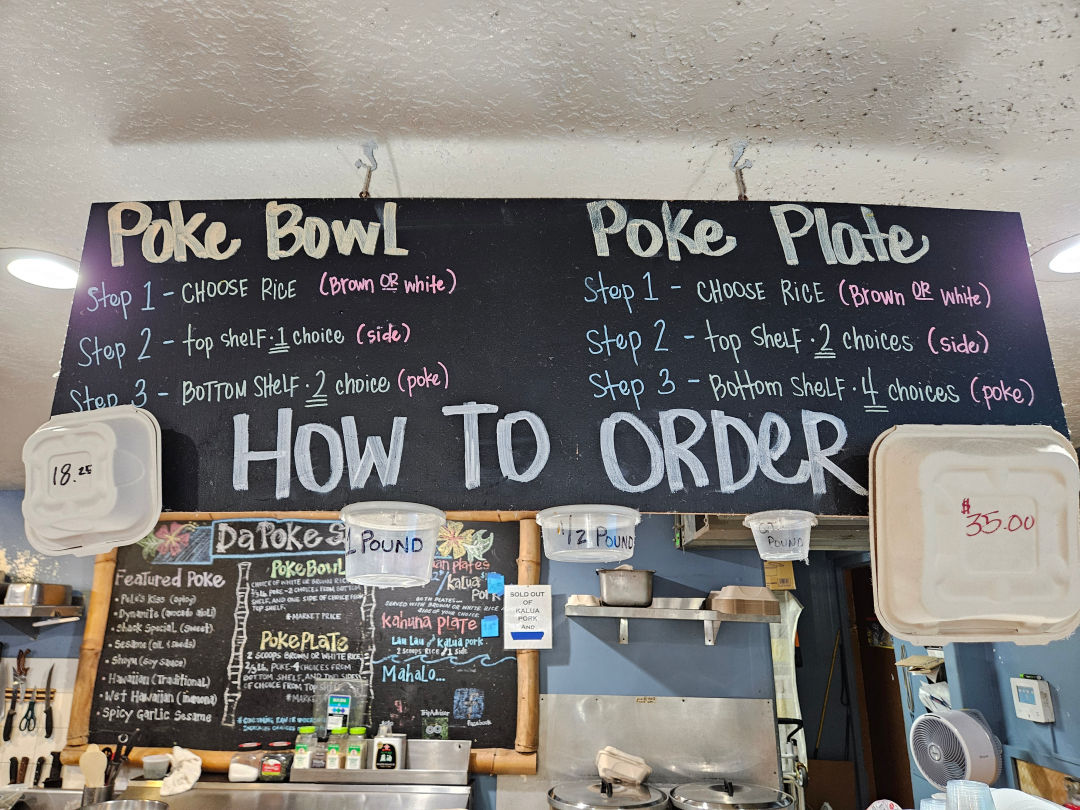 Poke Bowl
Step 1 - CHOOSE RICE (Brown OR white)
Step 2 - top shelf · 1 choice (side)
Step 3 - BOTTOM SHELF · 2 choice (poke)
Poke Plate
Step 1 - CHOOSE RICE (Brown OR white)
Step 2 - top Shelf · 2 choices (side)
Step 3 - Bottom Shelf · 4 choices (poke)
HOW TO ORDER
18.25
1 POUND
1/2 POUND
POUND
$35.00
Da Poke S
Featured Poke
• Pele's Kiss (spicy)
• Dynamite (avocado aioli)
• Shack Special (sweet)
• Sesame (oil & seeds)
• Shoyu (soy sauce)
• Hawaiian (Traditional)
• Wet Hawaiian (inamona)
• Spicy Garlic Sesame
Poke Bowl
CHOICE OF WHITE OR BROWN RICE
POKE - 2 CHOICES FROM BOTTOM
SHELF, AND ONE SIDE OF CHOICE FROM
TOP SHELF.
*MARKET PRICE
Poke Plate
2 SCOOPS BROWN OR WHITE RICE
POKE - 4 CHOICES FROM
BOTTOM SHELF, AND TWO SIDES
OF CHOICE FROM TOP
Plates
Kalua
Pork
BOTH PLATES -
SERVED WITH BROWN OR WHITE RICE
SIDE OF YOUR CHOICE
Kahuna Plate
Lau Lau and Kalua pork.
2 Scoops Rice 1 side
Mahalo...
TripAdvisor
Facebook
SOLD OUT
OF
KALUA
PORK
AND